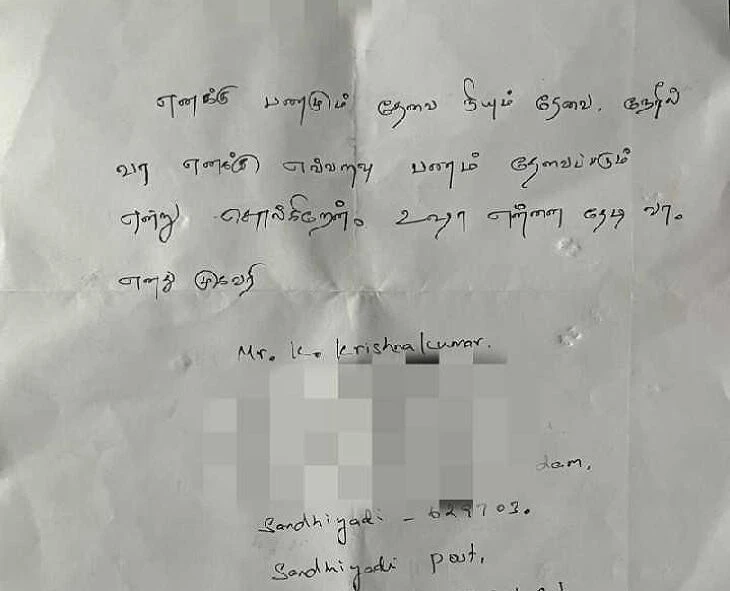 எனக்கு பணமும் தேவை நீயும் தேவை. நேரில்
வர எனக்கு எவ்வளவு பணம் தேவைப்படும்
என்று சொல்கிறேன். உஷா என்னை தேடி வா.
எனது முகவரி
Mr. K. Krishna kumar.
dam,
Sandhiyadi - 629703.
Sandhiyadi post,